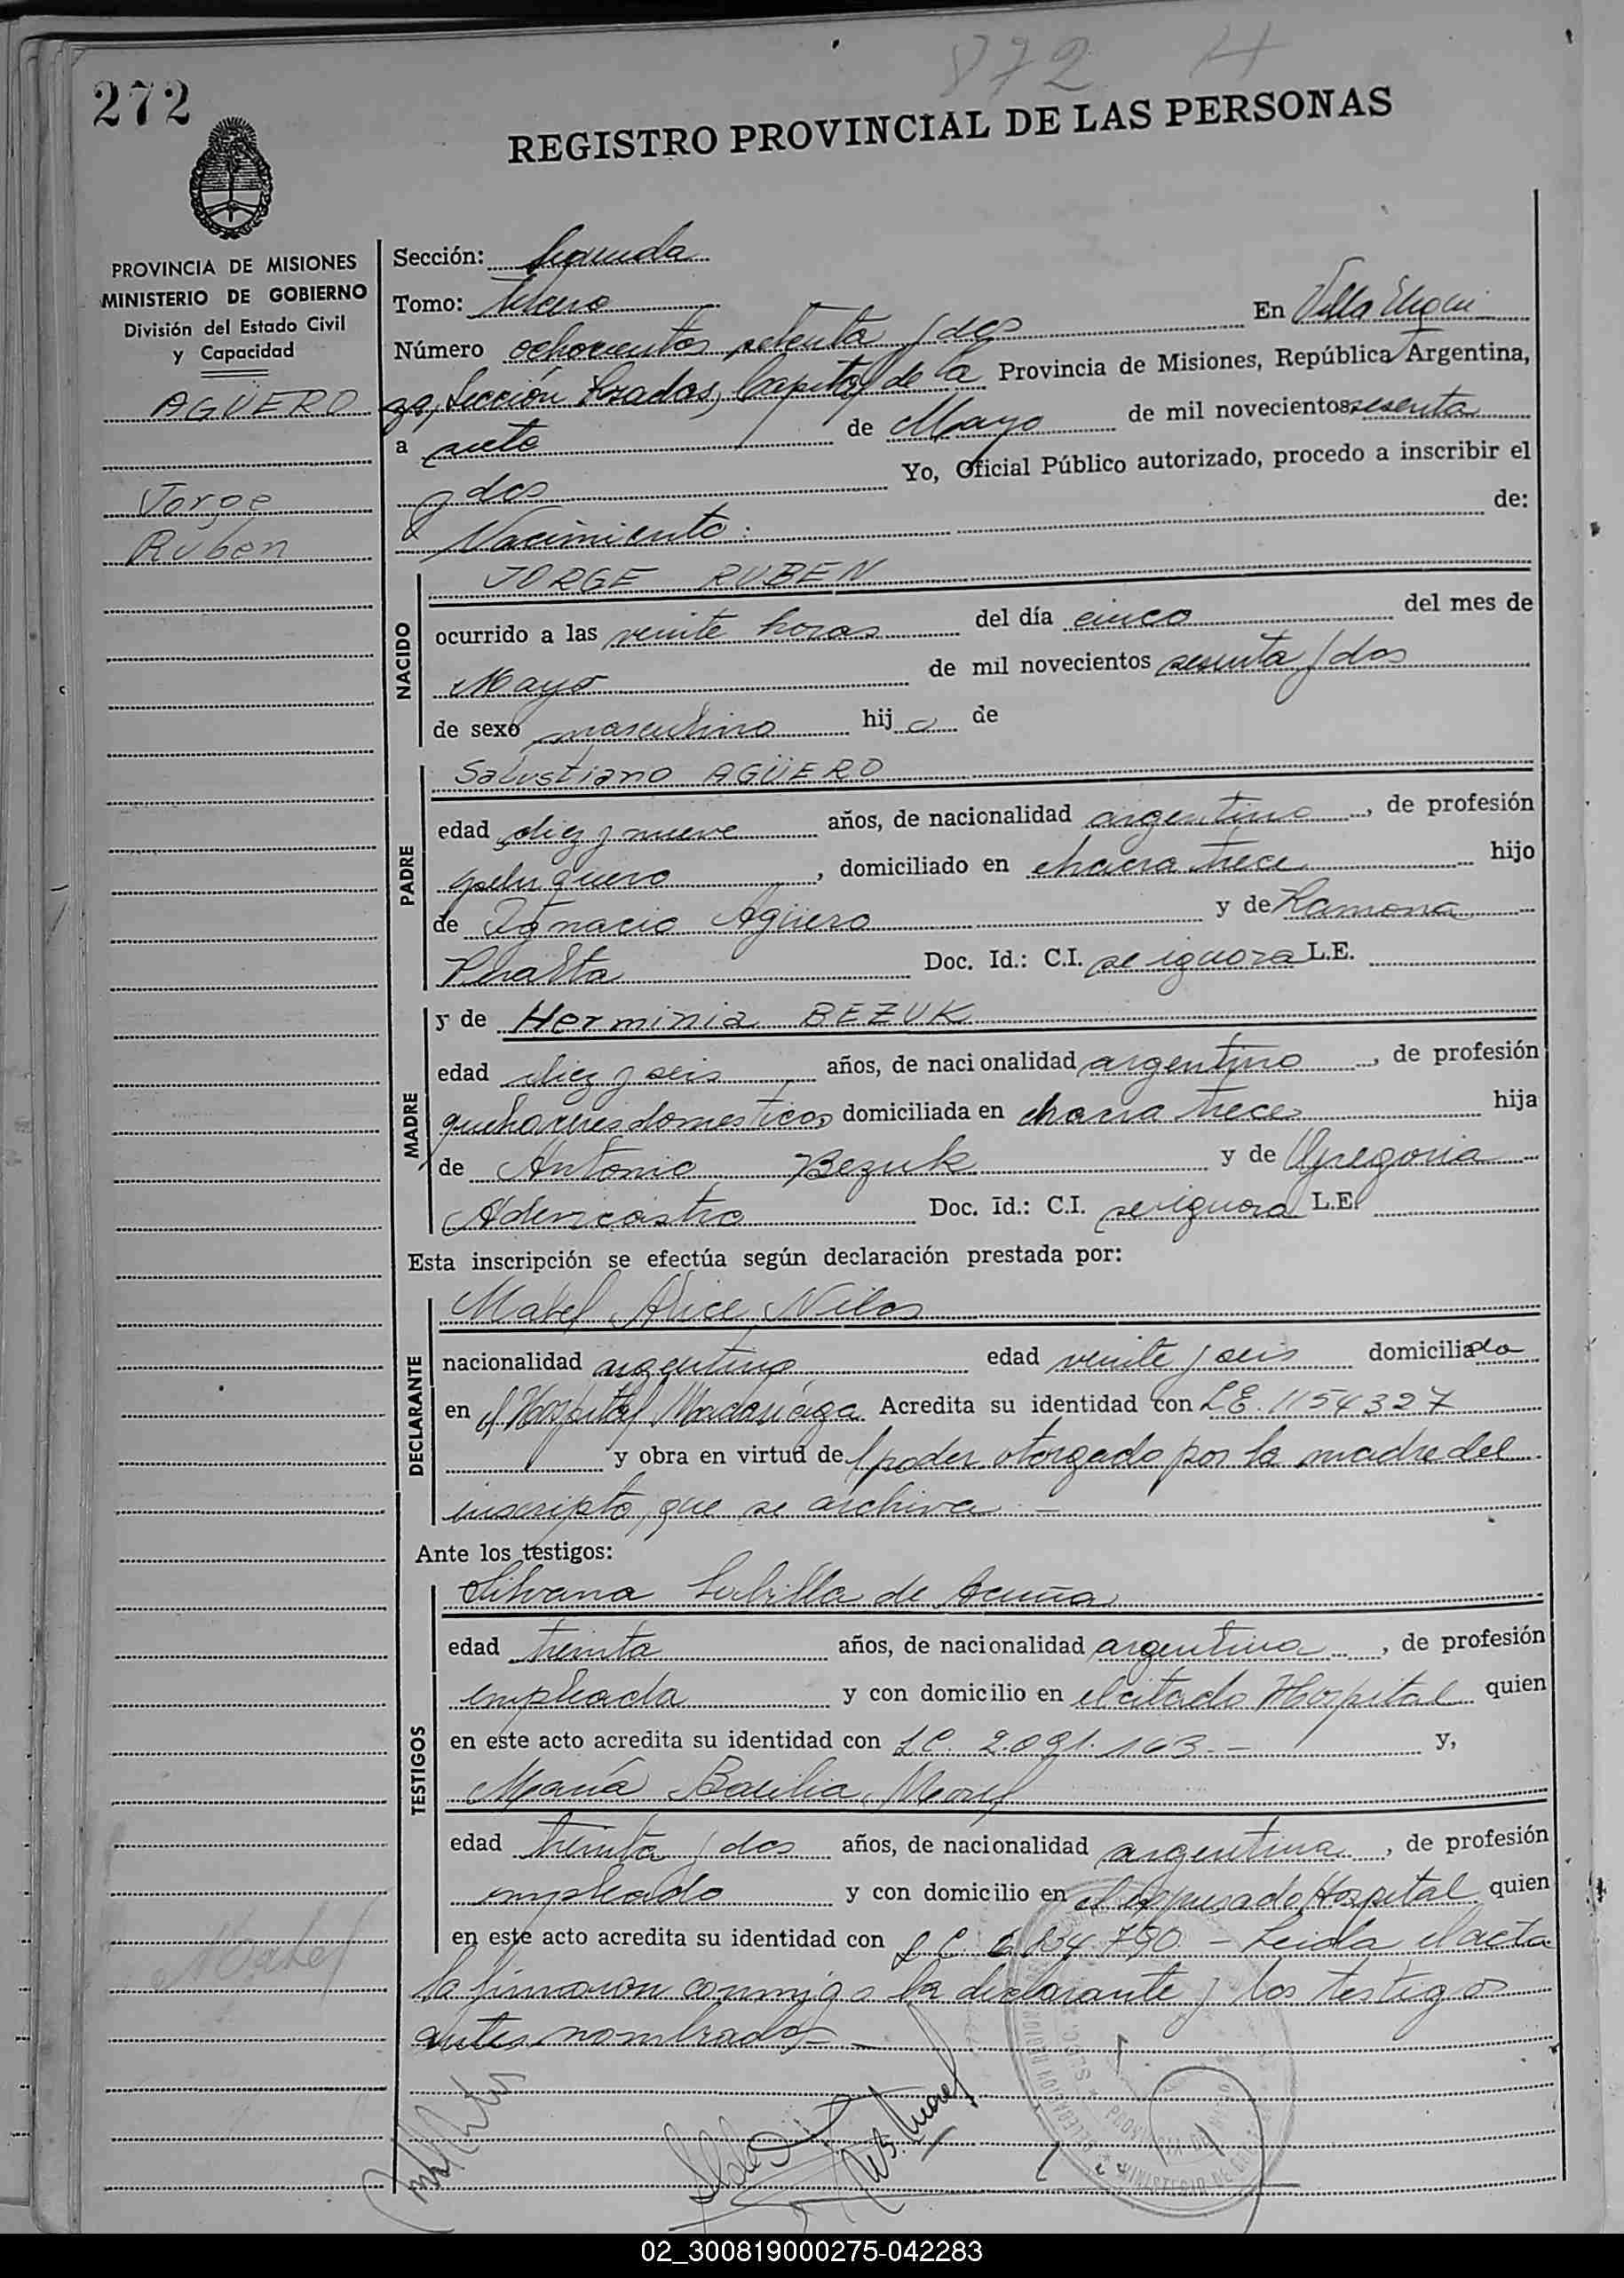 872 H
272
REGISTRO PROVINCIAL DE LAS PERSONAS
PROVINCIA DE MISIONES
MINISTERIO DE GOBIERNO
División del Estado Civil
y Capacidad
AGÜERO
Jorge
Ruben
Sección: Segunda
Tomo: tercero
En Villa Urqui
Número ochocientos setenta y dos
za, Sección Posadas, Capital de la Provincia de Misiones, República Argentina,
a siete de Mayo de mil novecientos sesenta
y dos Yo, Oficial Público autorizado, procedo a inscribir el
Nacimiento: de:
NACIDO
JORGE RUBEN
ocurrido a las veinte horas del día cinco del mes de
Mayo de mil novecientos sesenta y dos
de sexo masculino hijo de
PADRE
Salustiano AGÜERO
edad diez y nueve años, de nacionalidad argentino, de profesión
peluquero, domiciliado en chacra trece hijo
de Ignacio Agüero y de Ramona
Peralta Doc. Id.: C.I. se ignora L.E.
MADRE
y de Herminia BEZUK
edad diez y seis años, de nacionalidad argentina, de profesión
quehaceres domesticos domiciliada en chacra trece hija
de Antonio Bezuk y de Gregoria
Doc. Id.: C.I. se ignora L.E.
Esta inscripción se efectúa según declaración prestada por:
DECLARANTE
Mabel Alice
nacionalidad argentina edad veinte y seis domiciliada
en el Hospital Madariaga Acredita su identidad con 1154327
y obra en virtud del poder otorgado por la madre del
inscripto, que se archiva.—
Ante los testigos:
TESTIGOS
Silvana Lubilla de Acuña
edad treinta años, de nacionalidad argentina, de profesión
empleada y con domicilio en el citado Hospital quien
en este acto acredita su identidad con L.C. 2.091.163.— y,
María Basilia Morel
edad treinta y dos años, de nacionalidad argentina, de profesión
empleada y con domicilio en el expresado Hospital quien
en este acto acredita su identidad con L.C. — Leida el acta
la firmaron conmigo la declarante y los testigos
antes nombrados—
02_300819000275-042283